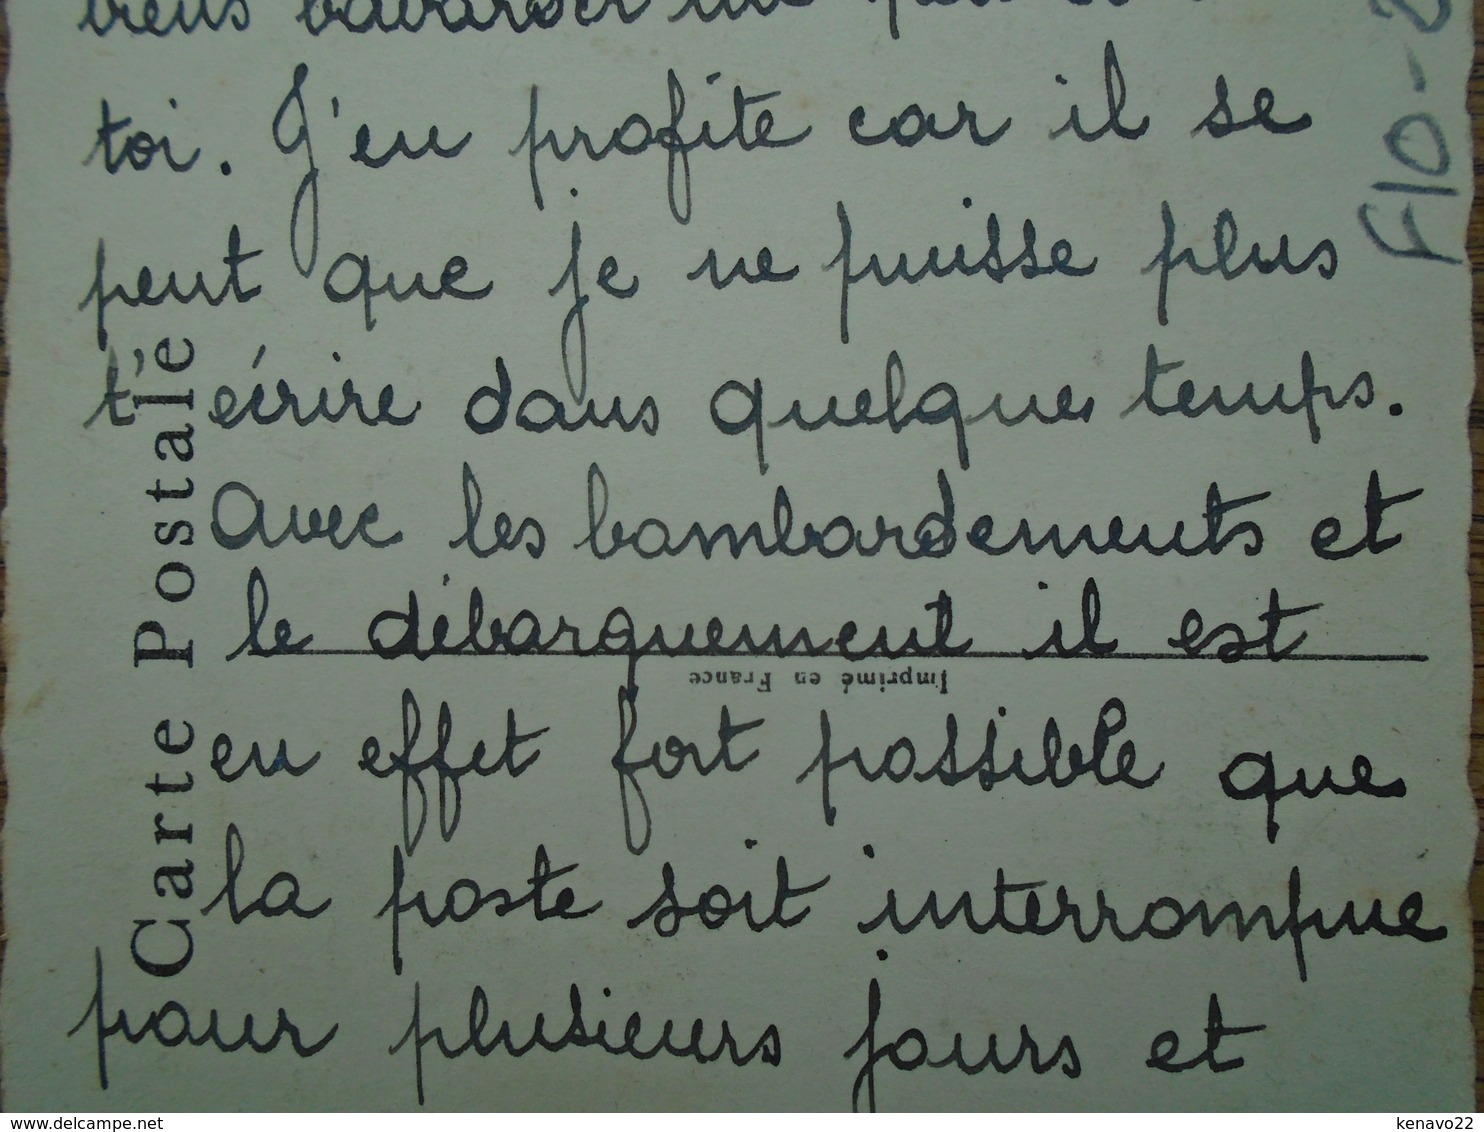 viens bavarder un peu
toi. J'en profite car il se
peut que je ne puisse plus
t'écrire dans quelque temps.
Avec les bombardements et
le débarquement il est
en effet fort possible que
la poste soit interrompue
pour plusieurs jours et
Carte Postale
Imprimé en France
F10-2
kenavo22